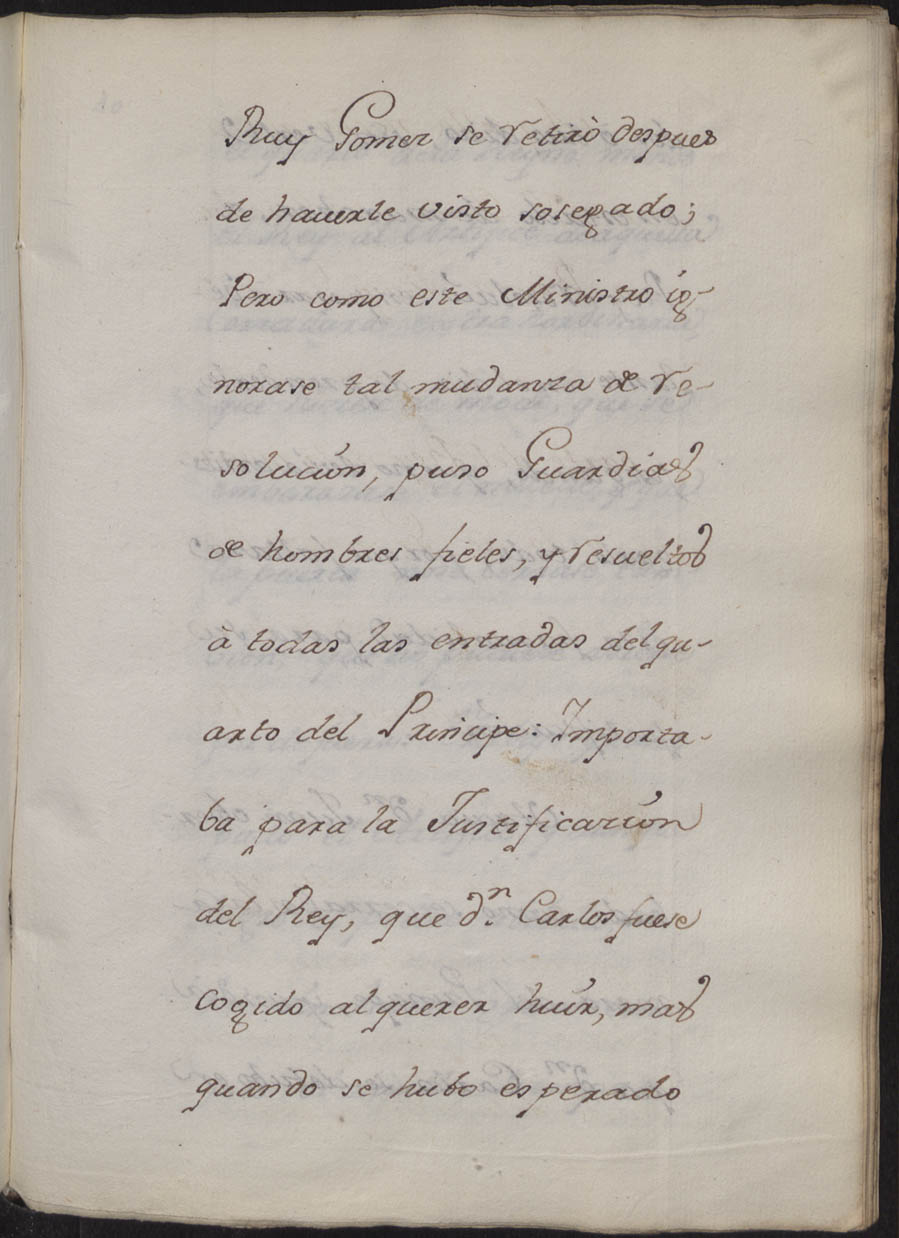 Ruy Gomez se retirò despues
de hauerle visto sosegado;
Pero como este Ministro ig-
norase tal mudanza de re-
solución, puso Guardias
de hombres fieles, y resueltos
à todas las entradas del qu-
arto del Principe: Importa-
ba para la Justificación
del Rey, que dn. Carlos fuese
cogido al querer huír, mas
quando se hubo esperado